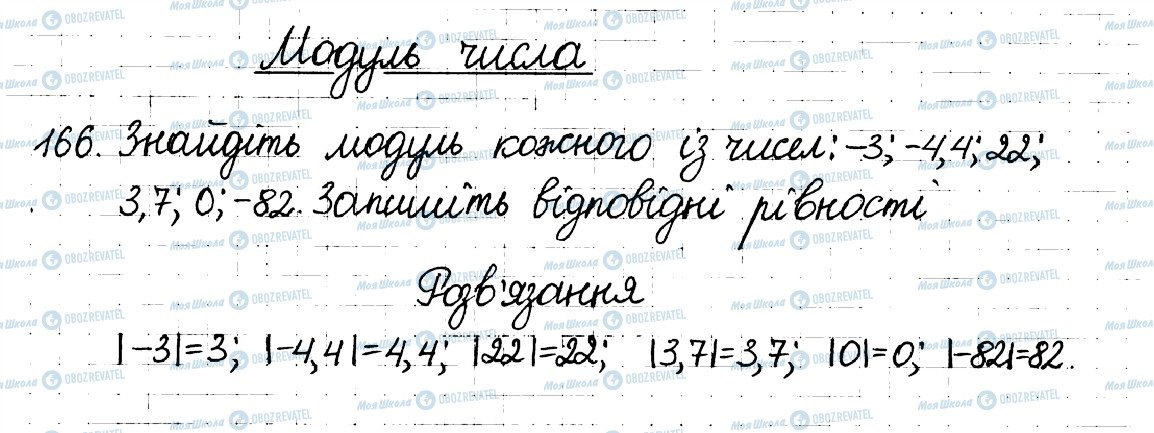 Модуль числа
166. Знайдіть модуль кожного із чисел: -3; -4,4; 22;
3,7; 0; -82. Запишіть відповідні рівності
Розв'язання
|-3|=3; |-4,4|=4,4; |22|=22; |3,7|=3,7; |0|=0; |-82|=82.
Моя Школа OBOZREVATEL